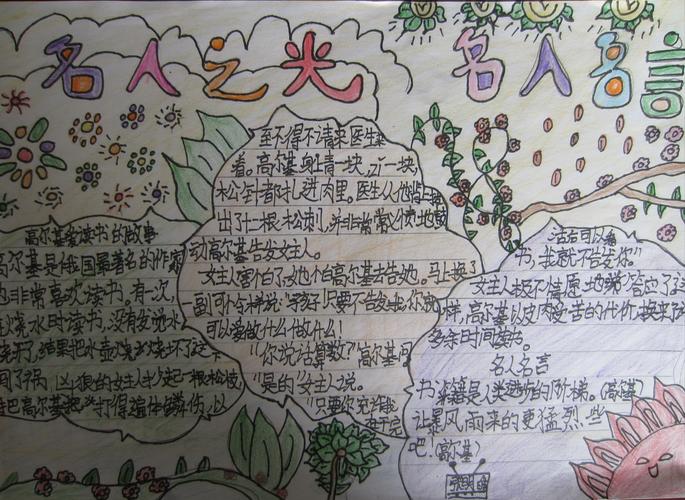 名人之光
名人名言
高尔基爱读书的故事
高尔基是俄国最著名的作家
也非常喜欢读书。有一次,
烧水时读书,没有发觉水
烧开了,结果把水壶烧坏了
闯了祸,凶狠的女主人抄起一根松枝
把高尔基打得遍体鳞伤,以
至不得不请来医生
看。高尔基身上青一块,一块,
松针都扎进肉里。医生从他背上
出了十二根松刺,并非常
动高尔基告发女主人。
女主人害怕了,她怕高尔基去告她。马上换了
一副可怜样说:孩子!只要不告发我,你就
可以爱做什么做什么!
"你说话算数?"高尔基问
"是的"女主人说。
"只要你允许我
在干完
活后可以看
书,我就不告发你"
女主人极不情愿地答应了这
样,高尔基以皮肉受苦的代价,换来了
多余时间读书。
名人名言
书籍是人类进步的阶梯。(高尔基)
让暴风雨来的更猛烈些
吧!(高尔基)